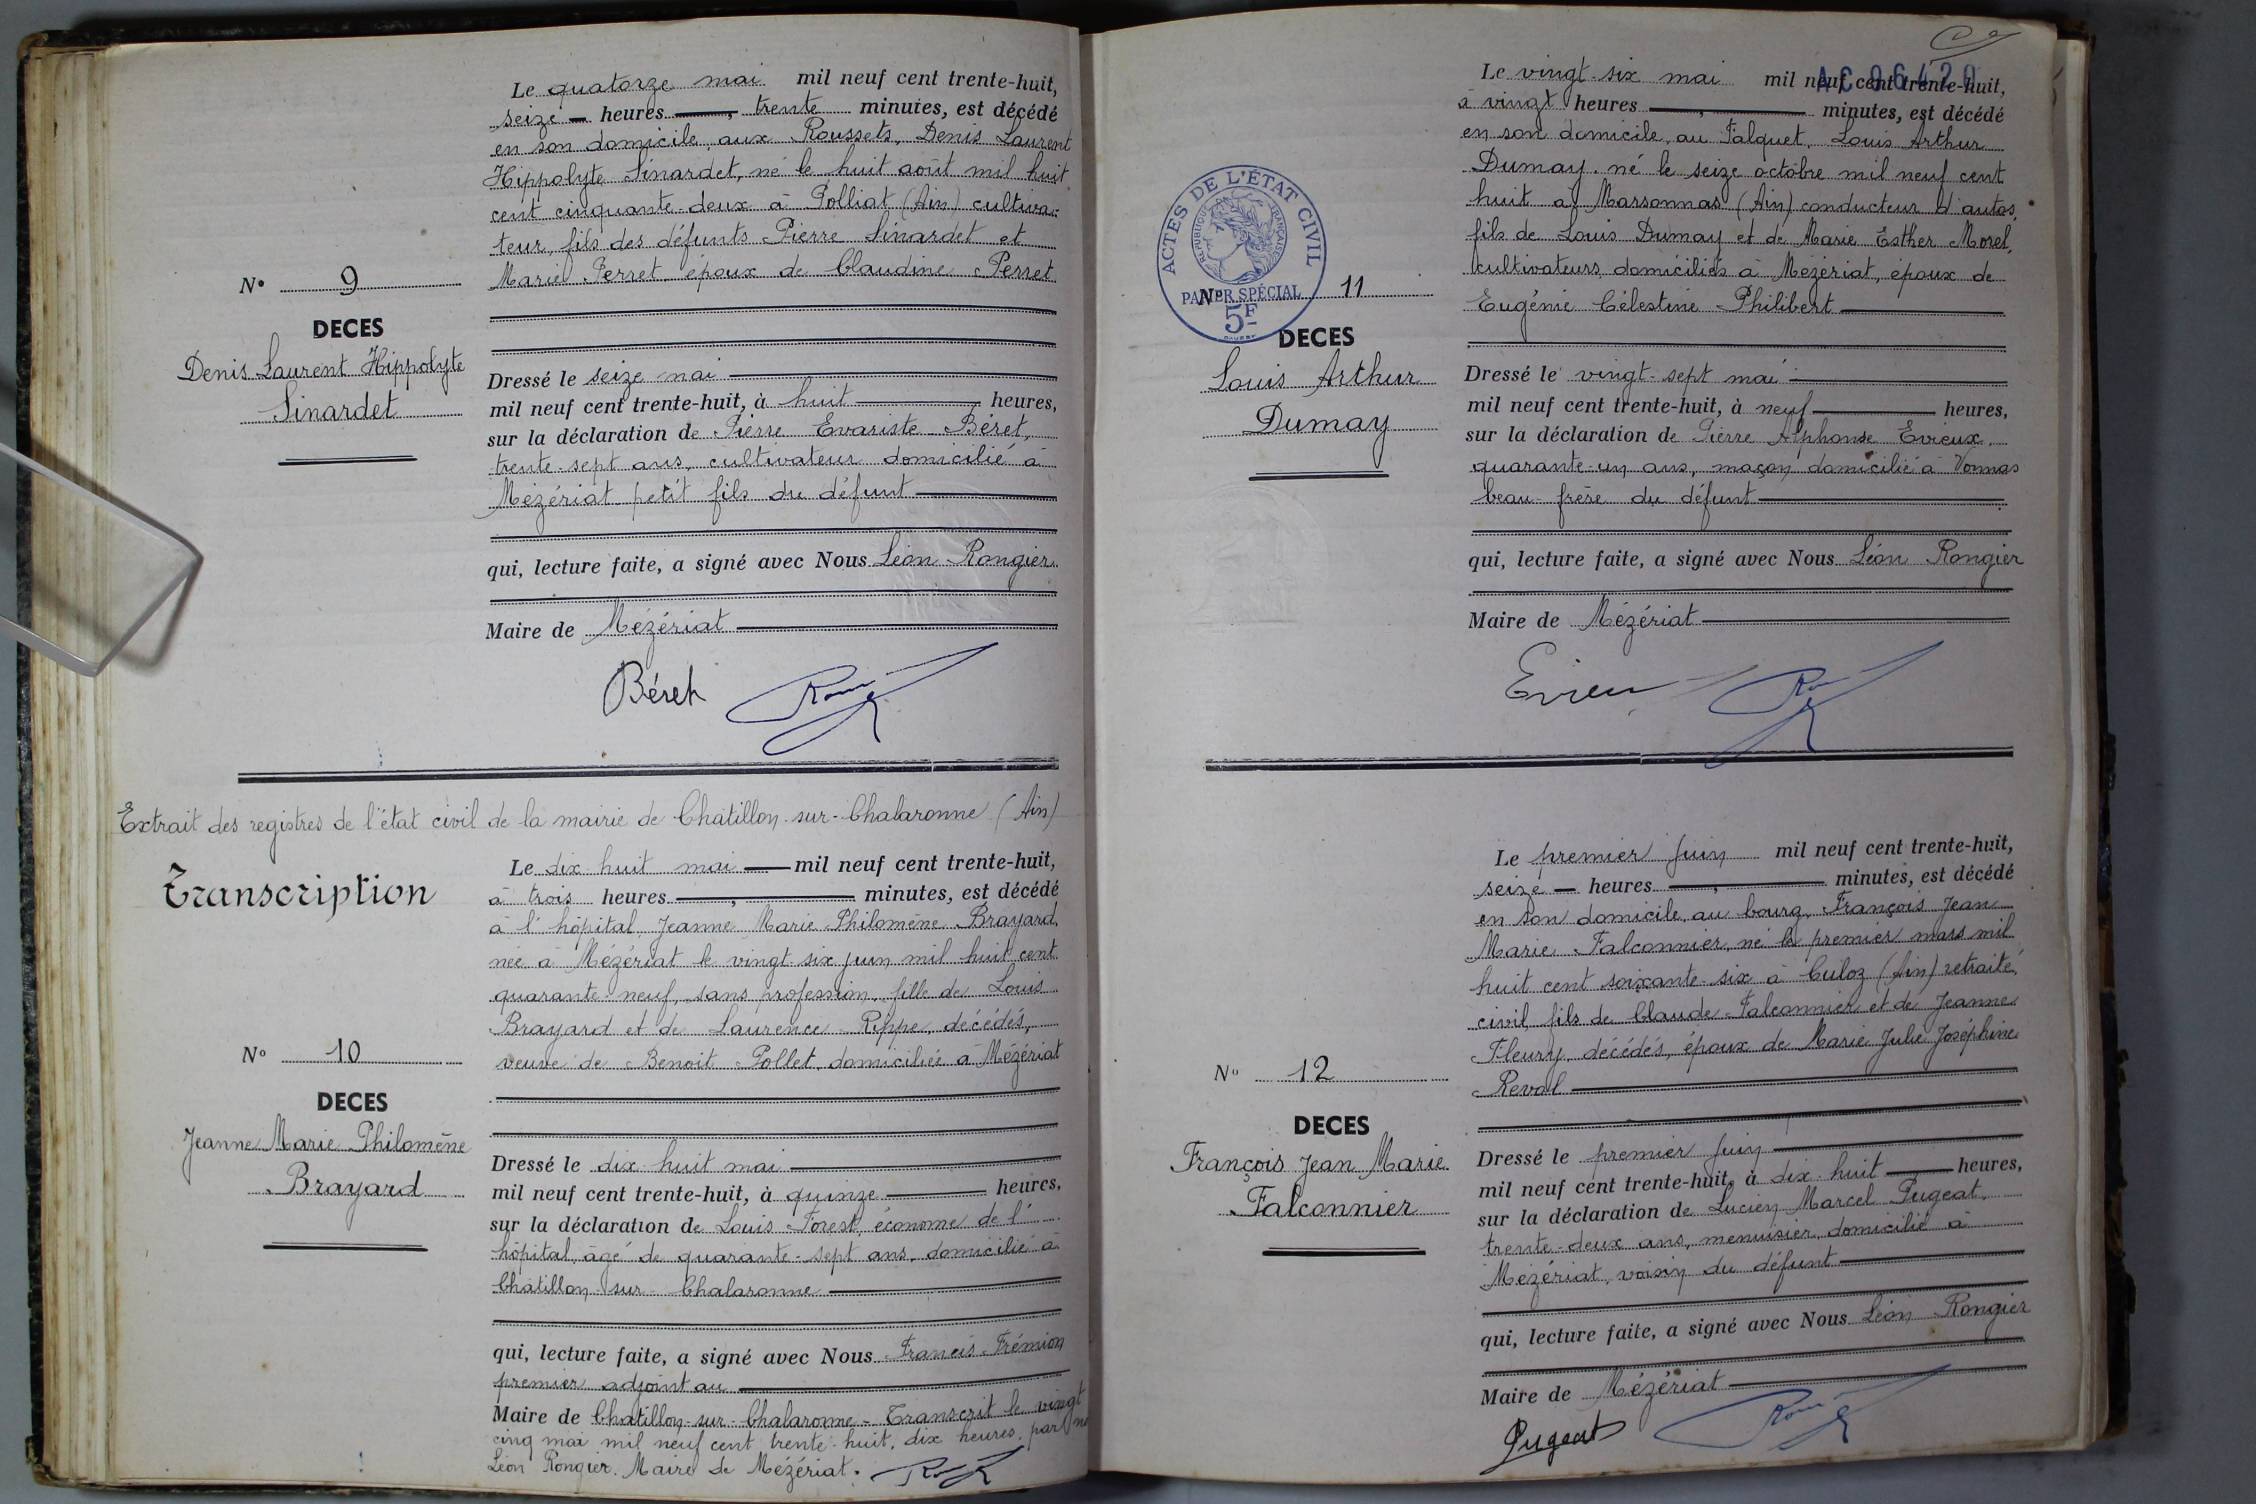 Le quatorze mai mil neuf cent trente-huit,
seize heures, trente minutes, est décédé
en son domicile, aux Roussets, Denis Laurent
Hippolyte Sinardet, né le huit août mil huit
cent cinquante-deux à Polliat (Ain) cultiva-
teur, fils des défunts Pierre Sinardet et
Marie Perret, époux de Claudine Perret
N° 9
DECES
Denis Laurent Hippolyte
Sinardet
Dressé le seize mai
mil neuf cent trente-huit, à huit heures,
sur la déclaration de Pierre Evariste Béret,
trente-sept ans, cultivateur domicilié à
Mézériat petit fils du défunt
qui, lecture faite, a signé avec Nous Léon Rongier
Maire de Mézériat
Béret
Extrait des registres de l'état civil de la mairie de Châtillon-sur-Chalaronne (Ain)
Transcription
Le dix huit mai mil neuf cent trente-huit,
à trois heures, minutes, est décédé
à l'hôpital, Jeanne Marie Philomène Brayard
née à Mézériat le vingt-six juin mil huit cent
quarante-neuf, sans profession, fille de Louis
Brayard et de Laurence Rippe, décédés,
veuve de Benoit Pollet, domiciliée à Mézériat
N° 10
DECES
Jeanne Marie Philomène
Brayard
Dressé le dix huit mai
mil neuf cent trente-huit, à quinze heures,
sur la déclaration de Louis Forest, économe de l'
hôpital, âgé de quarante-sept ans, domicilié à
Châtillon-sur-Chalaronne
qui, lecture faite, a signé avec Nous Francis Frémion
premier adjoint au
Maire de Châtillon-sur-Chalaronne - Transcrit le vingt
cinq mai mil neuf cent trente-huit, dix heures, par
Léon Rongier, Maire de Mézériat.
AC 96420
Le vingt-six mai mil neuf cent trente-huit,
à vingt heures, minutes, est décédé
en son domicile, au Falquet, Louis Arthur
Dumay, né le seize octobre mil neuf cent
huit à Marsonnas (Ain) conducteur d'autos,
fils de Louis Dumay et de Marie Esther Morel,
cultivateurs domiciliés à Mézériat, époux de
Eugénie Célestine Philibert
ACTES DE L'ÉTAT CIVIL
RÉPUBLIQUE FRANÇAISE
PAPIER SPÉCIAL
5F
N° 11
DECES
Louis Arthur
Dumay
Dressé le vingt-sept mai
mil neuf cent trente-huit, à neuf heures,
sur la déclaration de Pierre Alphonse Evieux,
quarante-un ans, maçon domicilié à Vonnas
beau-frère du défunt
qui, lecture faite, a signé avec Nous Léon Rongier
Maire de Mézériat
Evieux
Le premier juin mil neuf cent trente-huit,
seize heures, minutes, est décédé
en son domicile, au bourg, François Jean
Marie Falconnier, né le premier mars mil
huit cent soixante-six à Culoz (Ain) retraité
civil, fils de Claude Falconnier et de Jeanne
Fleury, décédés, époux de Marie Julie Joséphine
Reval
N° 12
DECES
François Jean Marie
Falconnier
Dressé le premier juin
mil neuf cent trente-huit, à dix-huit heures,
sur la déclaration de Lucien Marcel Pugeat,
trente-deux ans, menuisier, domicilié à
Mézériat, voisin du défunt
qui, lecture faite, a signé avec Nous Léon Rongier
Maire de Mézériat
Pugeat